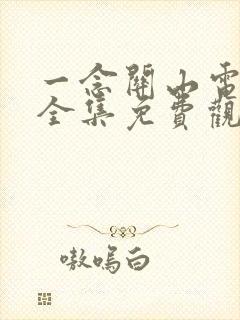 一念關山電
全集免費觀
嗷嗚白